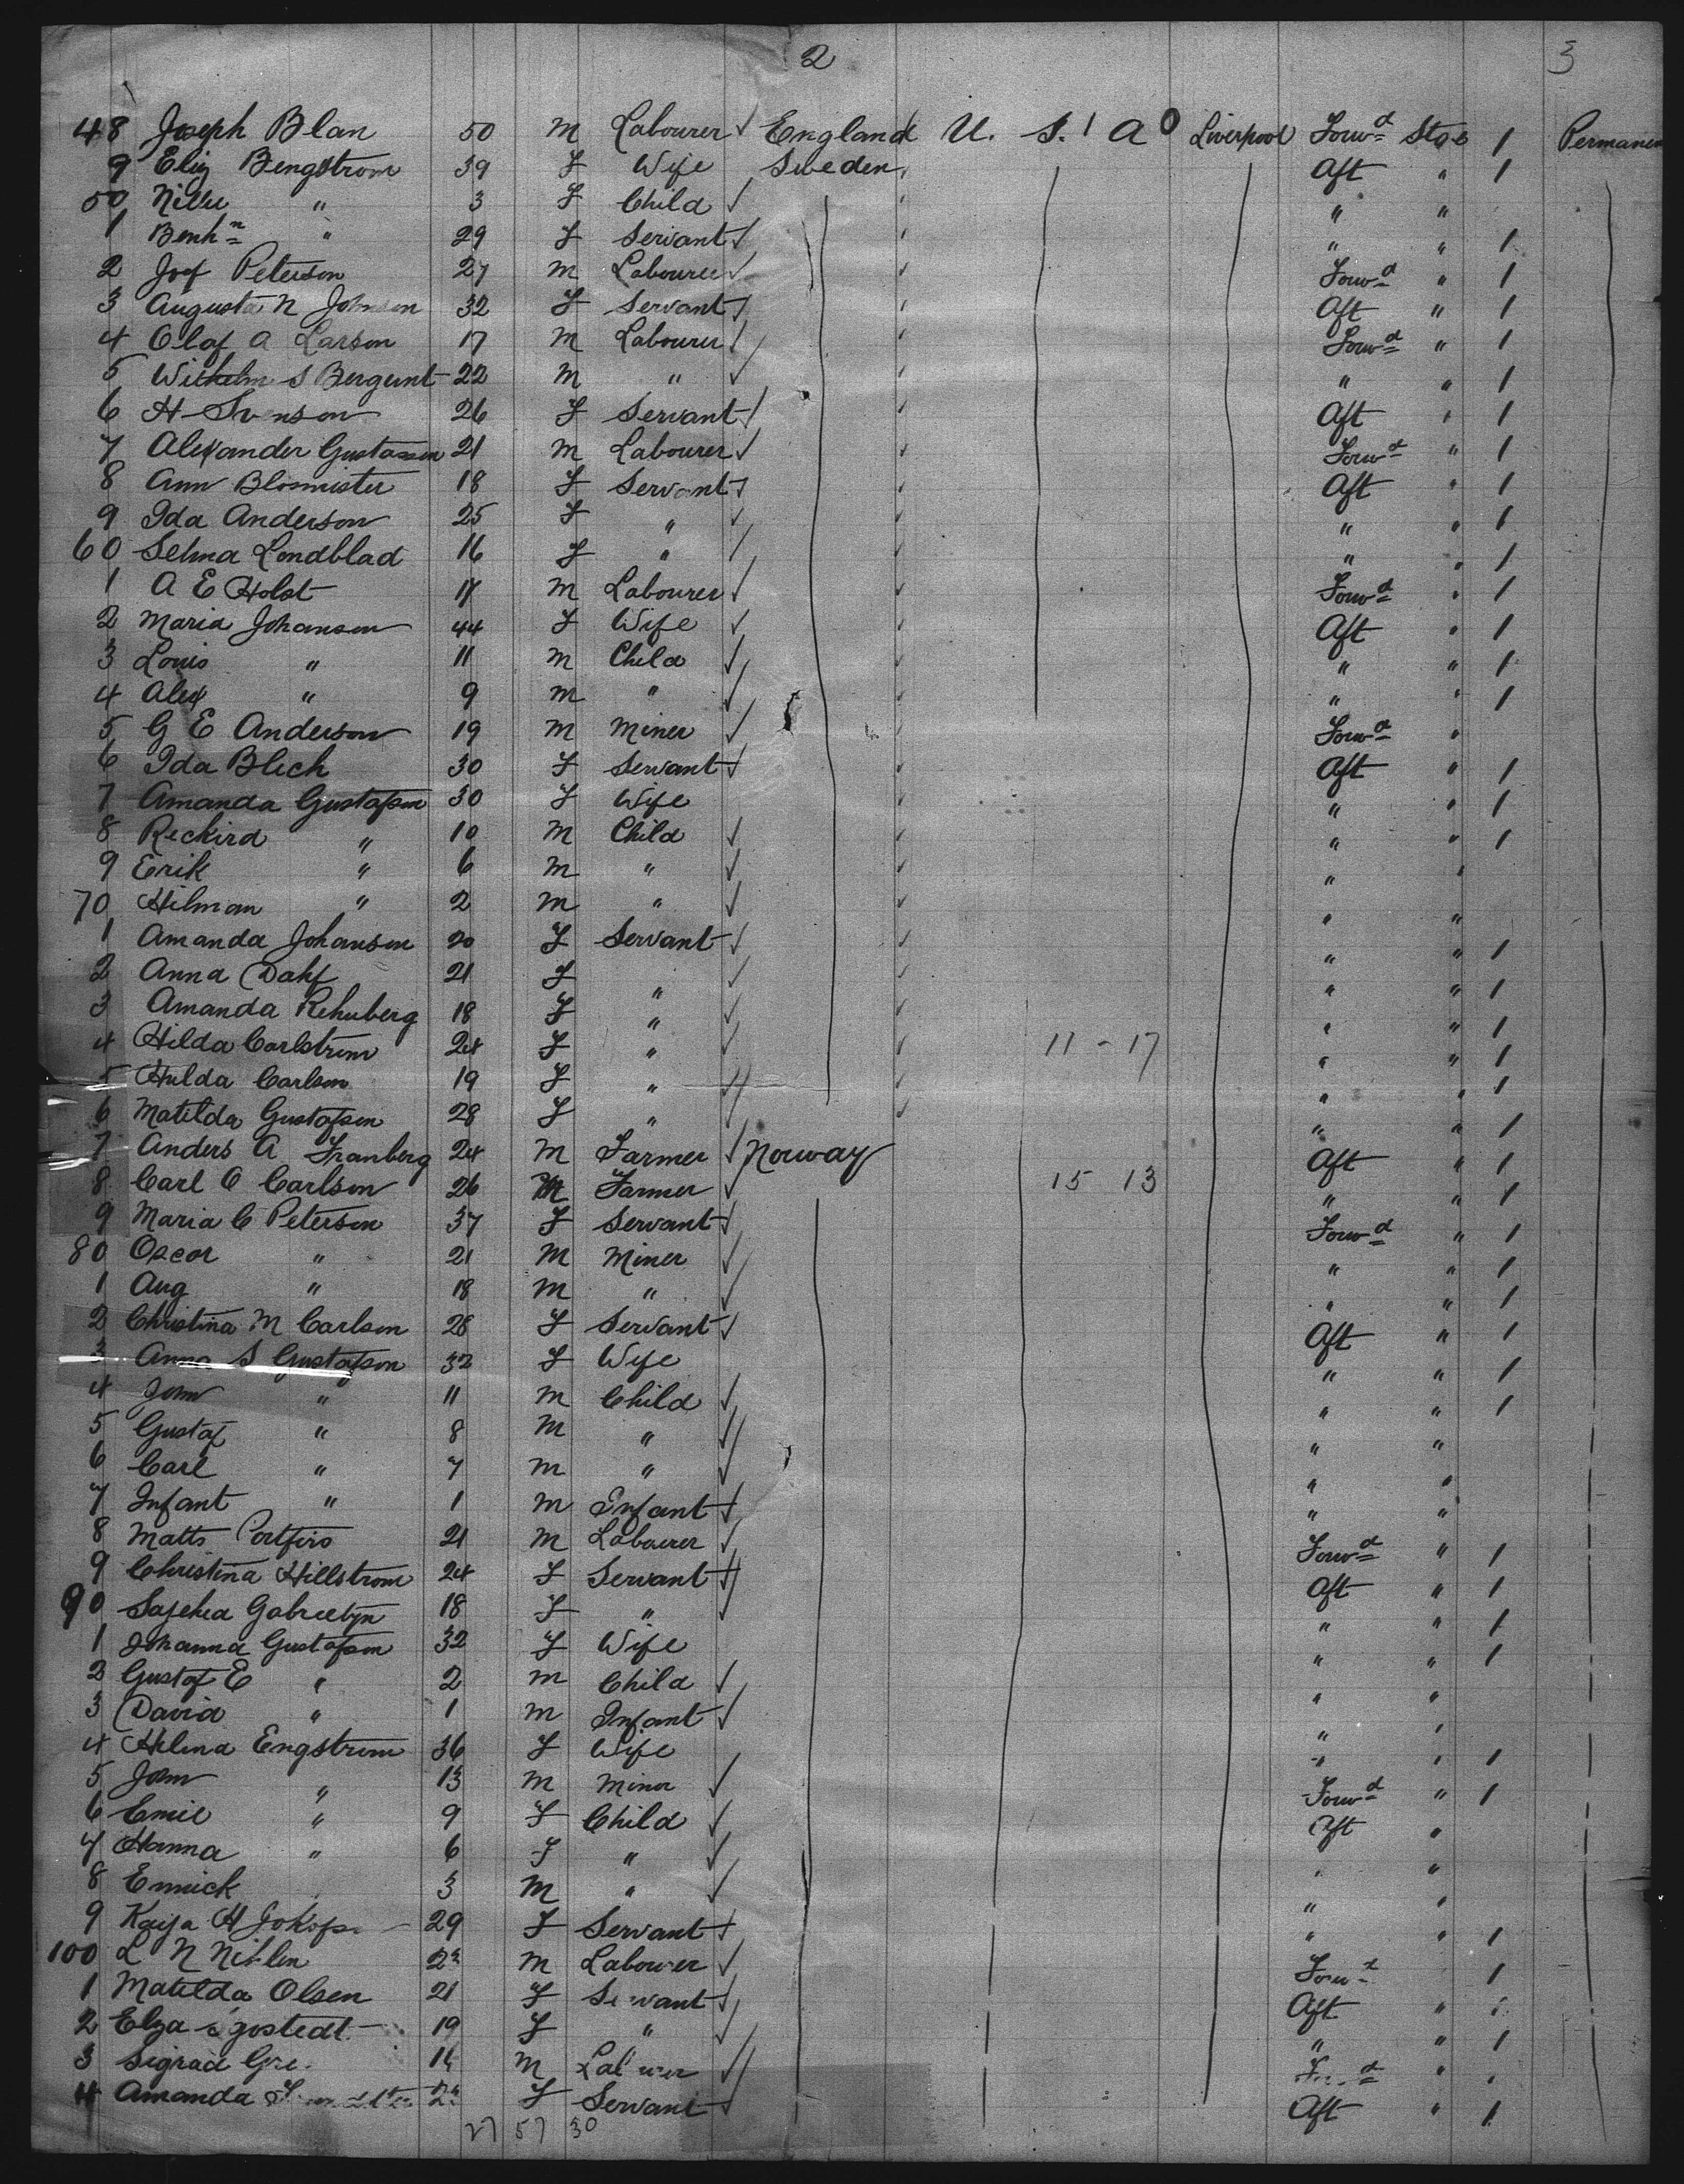 2 3
48 Joseph Blan 50 m Labourer England U. S. A Liverpool Forwd Stge 1 Permanen
9 Eliz Bengstrom 39 F Wife Sweden Aft " 1
50 " 3 F Child " "
1 Benhn " 29 F Servant " " 1
2 Jos Peterson 27 m Labourer Forwd " 1
3 Augusta N Johnson 32 F Servant Aft " 1
4 Olaf A Larson 17 m Labourer Forwd " 1
5 Wilhelm S 22 m " " " 1
6 H Svenson 26 F Servant Aft " 1
7 Alexander Gustafson 21 m Labourer Forwd " 1
8 Ann Blommister 18 F Servant Aft " 1
9 Ida Anderson 25 F " " " 1
60 Selma Londblad 16 F " " " 1
1 A E Holst 17 m Labourer Forwd " 1
2 Maria Johansen 44 F Wife Aft " 1
3 Louis " 11 m Child " " 1
4 Alex " 9 m " " " 1
5 G E Anderson 19 m Miner Forwd "
6 Ida Blech 30 F Servant Aft " 1
7 Amanda Gustafson 30 F Wife " " 1
8 Reckird " 10 m Child " " 1
9 Erik " 6 m " " "
70 Hilman " 2 m " " "
1 Amanda Johansen 20 F Servant " " 1
2 Anna Dahl 21 F " " " 1
3 Amanda Rehnberg 18 F " " " 1
4 Hilda Carlstrom 24 F " 11 - 17 " " 1
5 Hulda Carlson 19 F " " " 1
6 Matilda Gustafson 28 F " " " 1
7 Anders A Franberg 24 m Farmer Norway Aft " 1
8 Carl O Carlson 26 m Farmer 15 13 " " 1
9 Maria C Peterson 37 F Servant Forwd " 1
80 Oscar " 21 m Miner " " 1
1 Aug " 18 m " " " 1
2 Christina M Carlson 28 F Servant Aft " 1
3 Anna S Gustafson 32 F Wife " " 1
4 John " 11 m Child " " 1
5 Gustaf " 8 m " " "
6 Carl " 7 m " " "
7 Infant " 1 m Infant " "
8 Matts 21 m Labourer Forwd " 1
9 Christina Hillstrom 24 F Servant Aft " 1
90 18 F " " " 1
1 Johanna Gustafson 32 F Wife " " 1
2 Gustaf E " 2 m Child " "
3 David " 1 m Infant " "
4 Helena Engstrom 36 F Wife " " 1
5 John " 13 m Minor Forwd " 1
6 Emil " 9 F Child Aft "
7 Hanna " 6 F " " "
8 Emrick 3 m " " "
9 Kaija H 29 F Servant " " 1
100 L N m Labourer Forwd 1
1 Matilda Olsen 21 F Servant Aft " 1
2 Elza 19 F " " " 1
3 Sigrad m Labourer Forwd "
4 Amanda F Servant Aft " 1
27 57 30